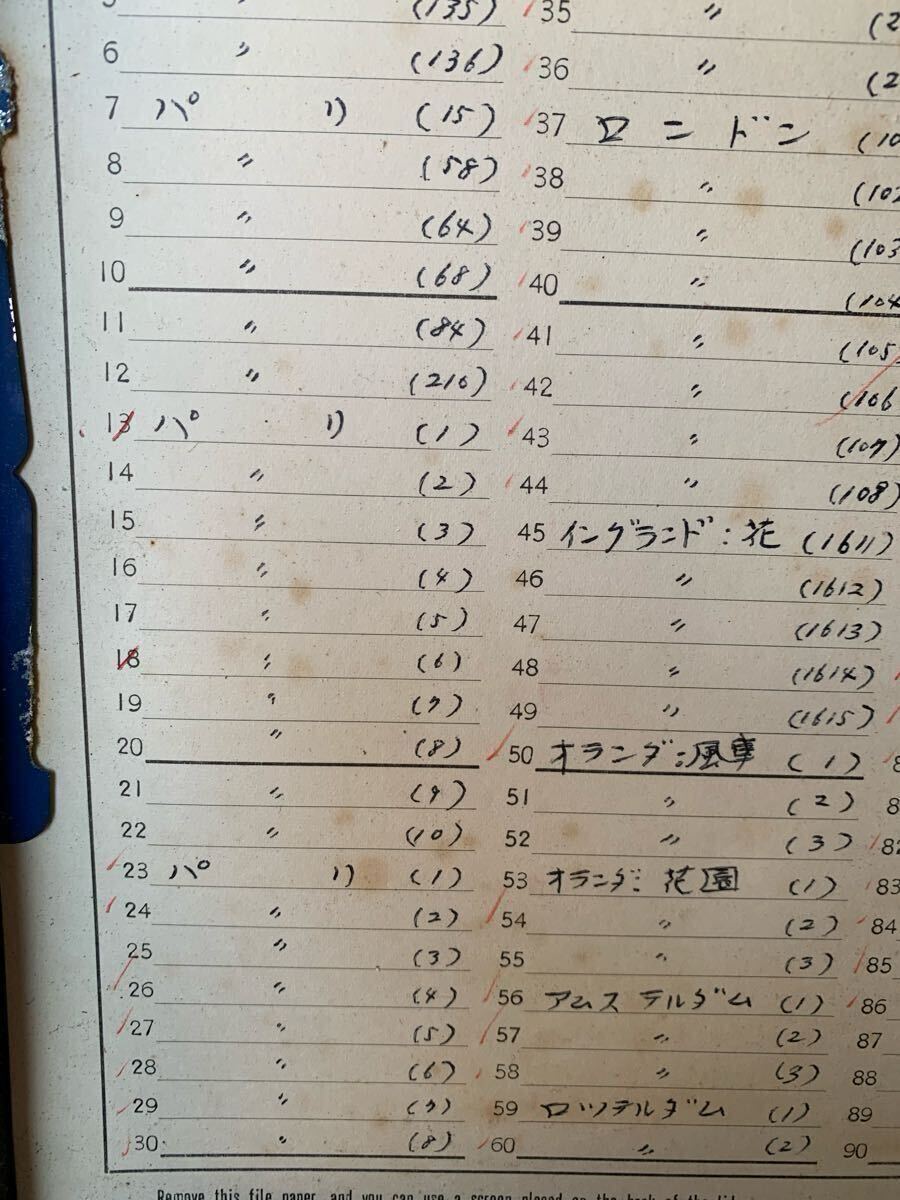 〃 (135)
6 〃 (136)
7 パリ (15)
8 〃 (58)
9 〃 (64)
10 〃 (68)
11 〃 (84)
12 〃 (210)
13 パリ (1)
14 〃 (2)
15 〃 (3)
16 〃 (4)
17 〃 (5)
18 〃 (6)
19 〃 (7)
20 〃 (8)
21 〃 (9)
22 〃 (10)
23 パリ (1)
24 〃 (2)
25 〃 (3)
26 〃 (4)
27 〃 (5)
28 〃 (6)
29 〃 (7)
30 〃 (8)
35 〃
36 〃
37 ロンドン
38 〃
39 〃 (103
40 〃 (104
41 〃 (105
42 〃 (106
43 〃 (107)
44 〃 (108)
45 イングランド:花 (1611)
46 〃 (1612)
47 〃 (1613)
48 〃 (1614)
49 〃 (1615)
50 オランダ:風車 (1)
51 〃 (2)
52 〃 (3)
53 オランダ:花園 (1)
54 〃 (2)
55 〃 (3)
56 アムステルダム (1)
57 〃 (2)
58 〃 (3)
59 ロッテルダム (1)
60 〃 (2)
82
83
84
85
86
87
88
89
90
Remove this file paper, and you can use a screen placed on the back of the lid